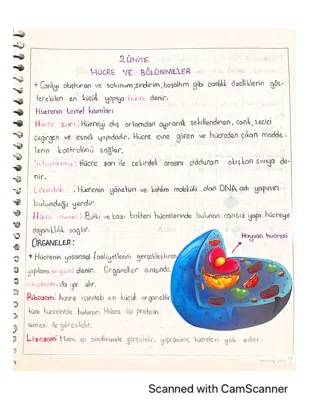 2.ÜNİTE
HÜCRE VE BÖLÜNMELER
+ Canlıyı oluşturan ve solunum, sindirim, boşaltım gibi canlılık özelliklerini gös-
terebilen en küçük yapıya hücre denir.
Hücrenin temel kısımları
Hücre zarı: Hücreyi dış ortamdan ayırarak şekillendiren, canlı, seçici
geçirgen ve esnek yapıdadır. Hücre içine giren ve hücreden çıkan madde-
lerin kontrolünü sağlar.
Sitoplazma: Hücre zarı ile çekirdek arasını dolduran akışkan sıvıya de-
nir.
Çekirdek: Hücrenin yönetim ve kalıtım molekülü olan DNA adlı yapının
bulunduğu yerdir.
Hücre duvarı: Bitki ve bazı bakteri hücrelerinde bulunan cansız yapı hücreye
dayanıklılık sağlar.
ORGANELLER:
Hayvan hücresi
+ Hücrenin yaşamsal faaliyetlerini gerçekleştiren
yapılara organel denir. Organeller arasında
sitoplazma da yer alır.
Ribozom: hücre içindeki en küçük organeldir
tüm hücrelerde bulunur. Hücre içi protein
sentezi ile görevlidir.
Lizozom: Hücre içi sindirimde görevlidir. yıpranmış hücreleri yok eder.
Scanned with CamScanner